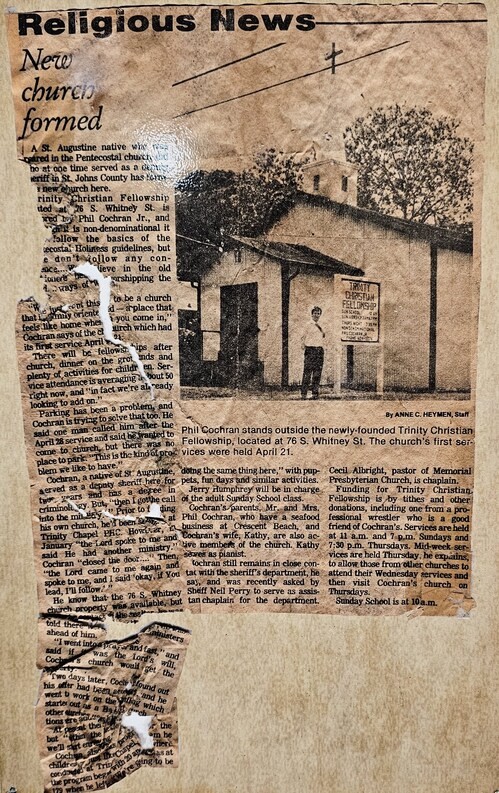 Religious News
New
church
formed
A St. Augustine native who was
reared in the Pentecostal church and
who at one time served as a deputy
sheriff in St. Johns County has form
a new church here.
Trinity Christian Fellowship
located at 76 S. Whitney St. is
by Phil Cochran Jr., and
it is non-denominational it
follow the basics of the
Pentecostal Holiness guidelines, but
we don't follow any con-
believe in the old
ways of worshipping the
of this to be a church
that is family oriented — a place that
feels like home when you come in,"
Cochran says of the church which had
its first service April
There will be fellowships after
church, dinner on the grounds and
plenty of activities for children. Ser-
vice attendance is averaging about 50
right now, and "in fact we're already
looking to add on."
Parking has been a problem, and
Cochran is trying to solve that too. He
said one man called him after the
April 28 service and said he wanted to
come to church, but there was no
place to park. "This is the kind of prob-
lem we like to have."
Cochran, a native of St. Augustine,
served as a deputy sheriff here for
two years and has a degree in
criminology, but "then I got the call
into the ministry." Prior to
his own church, he'd been
Trinity Chapel
January "the Lord spoke to me and
said He had another ministry."
Cochran "closed the door." Then,
"the Lord came to me again and
spoke to me, and I said 'okay, if You
lead, I'll follow.'
He know that the 76 S. Whitney
church property was available, but
told there ministers
ahead of him.
"I went into prayer and fast," and
said if was the Lord's will,
Cochran's church would get the
Two days later, Cochran found out
his offer had been and he
went to work on the which
started out as a
other
At
but the
he'll
Cochran
children at
at Trinity
the program
when he left to be
By ANNE C. HEYMEN, Staff
TRINITY
CHRISTIAN
FELLOWSHIP
Phil Cochran stands outside the newly-founded Trinity Christian
Fellowship, located at 76 S. Whitney St. The church's first ser-
vices were held April 21.
doing the same thing here," with pup-
pets, fun days and similar activities.
Jerry Humphrey will be in charge
of the adult Sunday School class.
Cochran's parents, Mr. and Mrs.
Phil Cochran, who have a seafood
business at Crescent Beach, and
Cochran's wife, Kathy, are also ac-
tive members of the church. Kathy
serves as pianist.
Cochran still remains in close con-
tact with the sheriff's department, he
say, and was recently asked by
Sheiff Neil Perry to serve as assis-
tan chaplain for the department.
Cecil Albright, pastor of Memorial
Presbyterian Church, is chaplain.
Funding for Trinity Christian
Fellowship is by tithes and other
donations, including one from a pro-
fessional wrestler who is a good
friend of Cochran's. Services are held
at 11 a.m. and 7 p.m. Sundays and
7:30 p.m. Thursdays. Mid-week ser-
vices are held Thursday he explains,
to allow those from other churches to
attend their Wednesday services and
then visit Cochran's church on
Thursdays.
Sunday School is at 10 a.m.